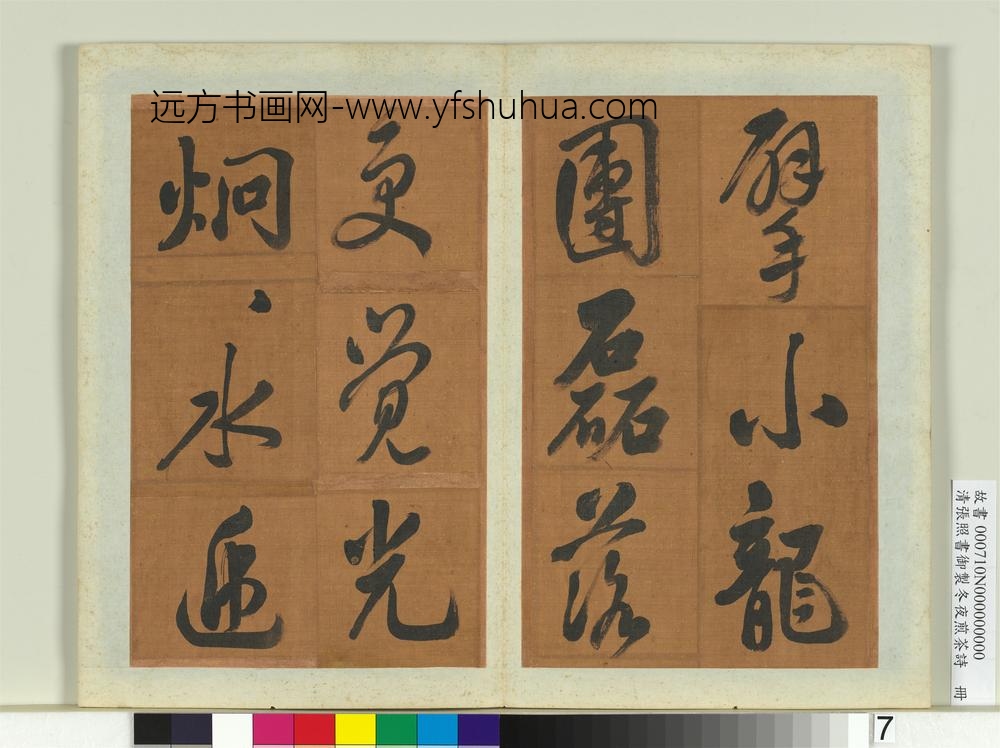 远方书画网-www.yfshuhua.com
擘小龍
團磊落
更覺光
炯、水遞
故書 000710N000000000
清張照書御製冬夜煎茶詩 冊
7